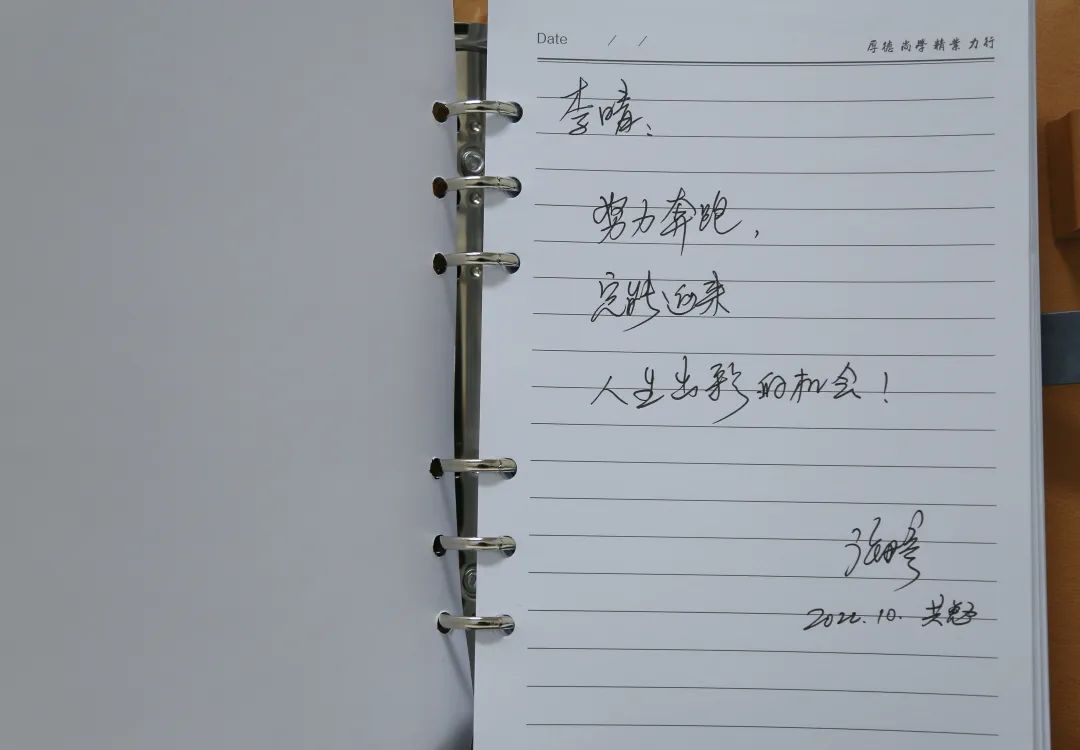 Date / /
厚德 尚學 精業 力行
李晴:
努力奔跑,
定能迎来
人生出彩的机会!
2022.10.